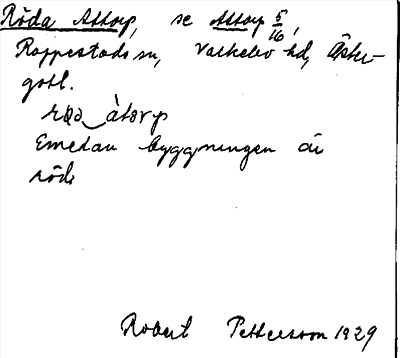 Röda Attorp, se Attorp 5/16,
Rappestads sn, Valkebo hd, Öster-
götl.
Emedan byggningen är
röd
Robert Pettersson 1929